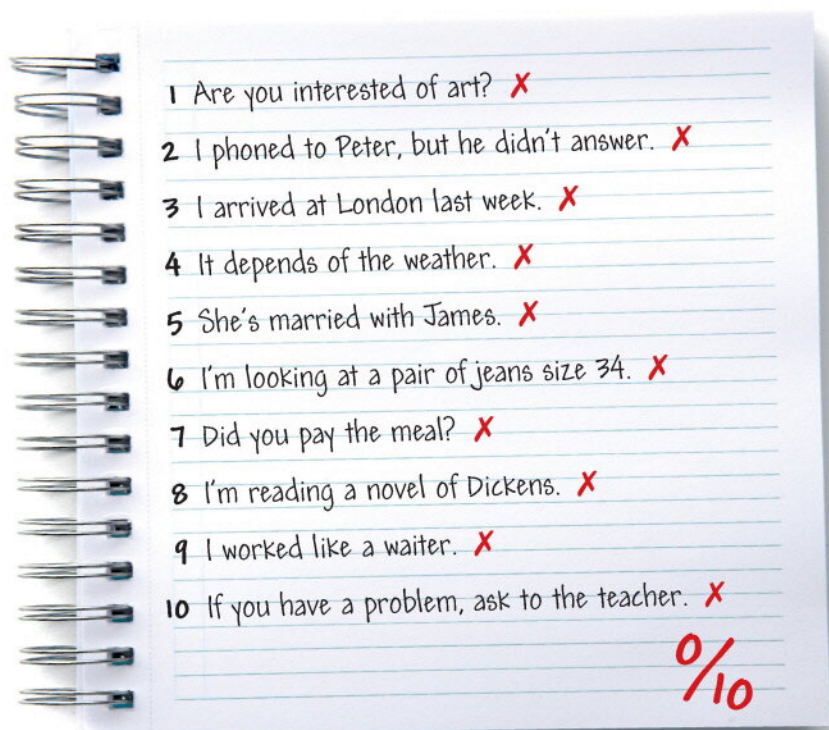 1 Are you interested of art? ✗
2 I phoned to Peter, but he didn't answer. ✗
3 I arrived at London last week. ✗
4 It depends of the weather. ✗
5 She's married with James. ✗
6 I'm looking at a pair of jeans size 34. ✗
7 Did you pay the meal? ✗
8 I'm reading a novel of Dickens. ✗
9 I worked like a waiter. ✗
10 If you have a problem, ask to the teacher. ✗
0/10